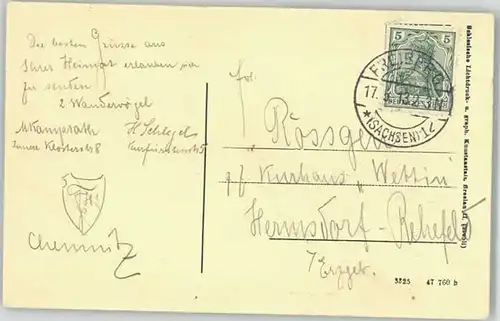 Die besten Grüsse aus
Ihrer Heimat erlauben sich
zu senden
2 Wandervögel
M Kamprath H Schlegel
Innere Klosterstr 8 Kurfürstenstr 5
Chemnitz
Frl.
Rössger
z. Z. Kurhaus „Wettin"
Hermsdorf-Rehefeld
/Erzgeb.
5
FREIBERG
17.
13
*(SACHSEN)1
Schlesische Lichtdruck- u. graph. Kunstanstalt, Breslau
3525 47 760 b